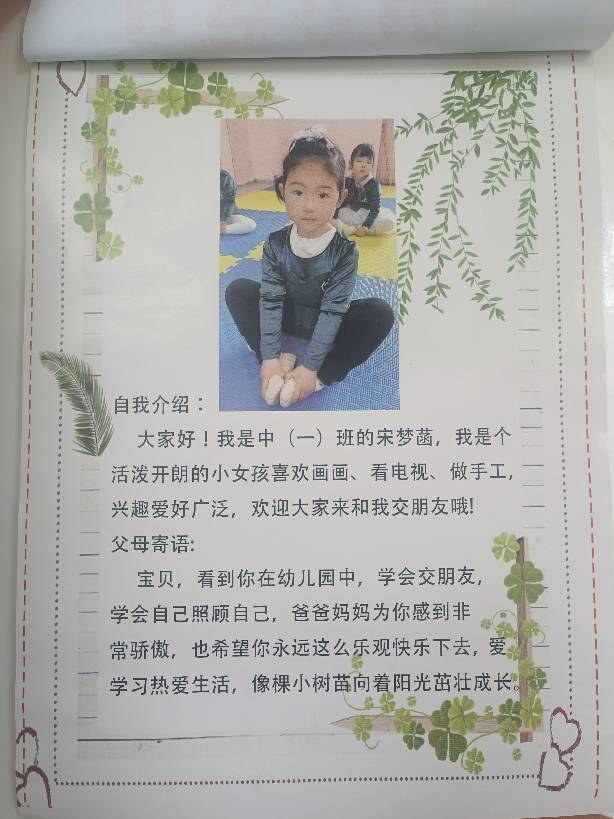 自我介绍：
大家好！我是中（一）班的宋梦菡，我是个
活泼开朗的小女孩喜欢画画、看电视、做手工,
兴趣爱好广泛，欢迎大家来和我交朋友哦!
父母寄语:
宝贝，看到你在幼儿园中，学会交朋友，
学会自己照顾自己，爸爸妈妈为你感到非
常骄傲，也希望你永远这么乐观快乐下去，爱
学习热爱生活，像棵小树苗向着阳光茁壮成长。